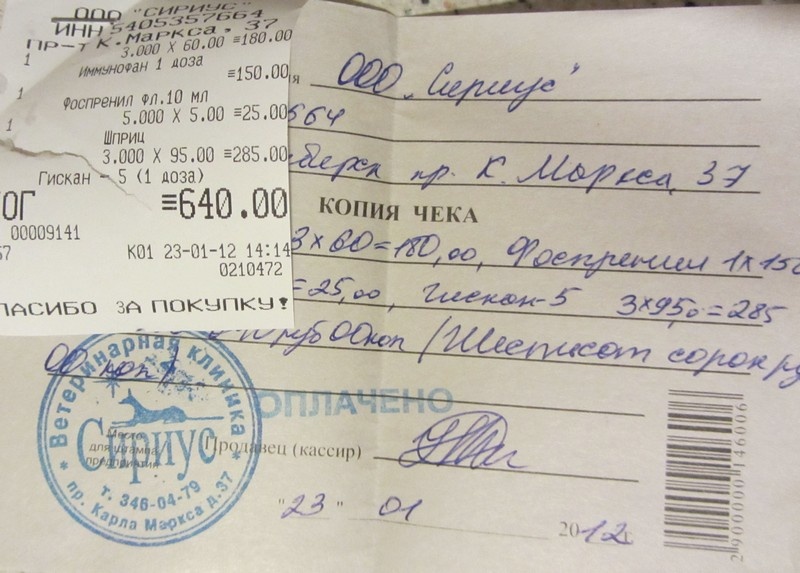 ООО "СИРИУС"
ИНН 5405357664
ПР-Т К.Маркса, 37
3.000 X 60.00 ≡180.00
1
Иммунофан 1 доза
≡150.00
1
Фоспренил фл.10 мл
5.000 X 5.00 ≡25.00
1
Шприц
3.000 X 95.00 ≡285.00
Гискан - 5 (1 доза)
ОГ ≡640.00
00009141
57 К01 23-01-12 14:14
0210472
ПАСИБО ЗА ПОКУПКУ!
я ООО „Сириус"
564
бирск пр. К. Маркса, 37
КОПИЯ ЧЕКА
3×60=180,00, Фоспренил 1×150
=25,00, Гискан-5 3×95,0=285
руб 00коп /Шестьсот сорок ру
00 коп/
ОПЛАЧЕНО
Продавец (кассир)
"23" 01 2012г.
Ветеринарная клиника
Сириус
Место
для штампа
предприятия
т. 346-04-79
пр. Карла Маркса д.37
2900000146006